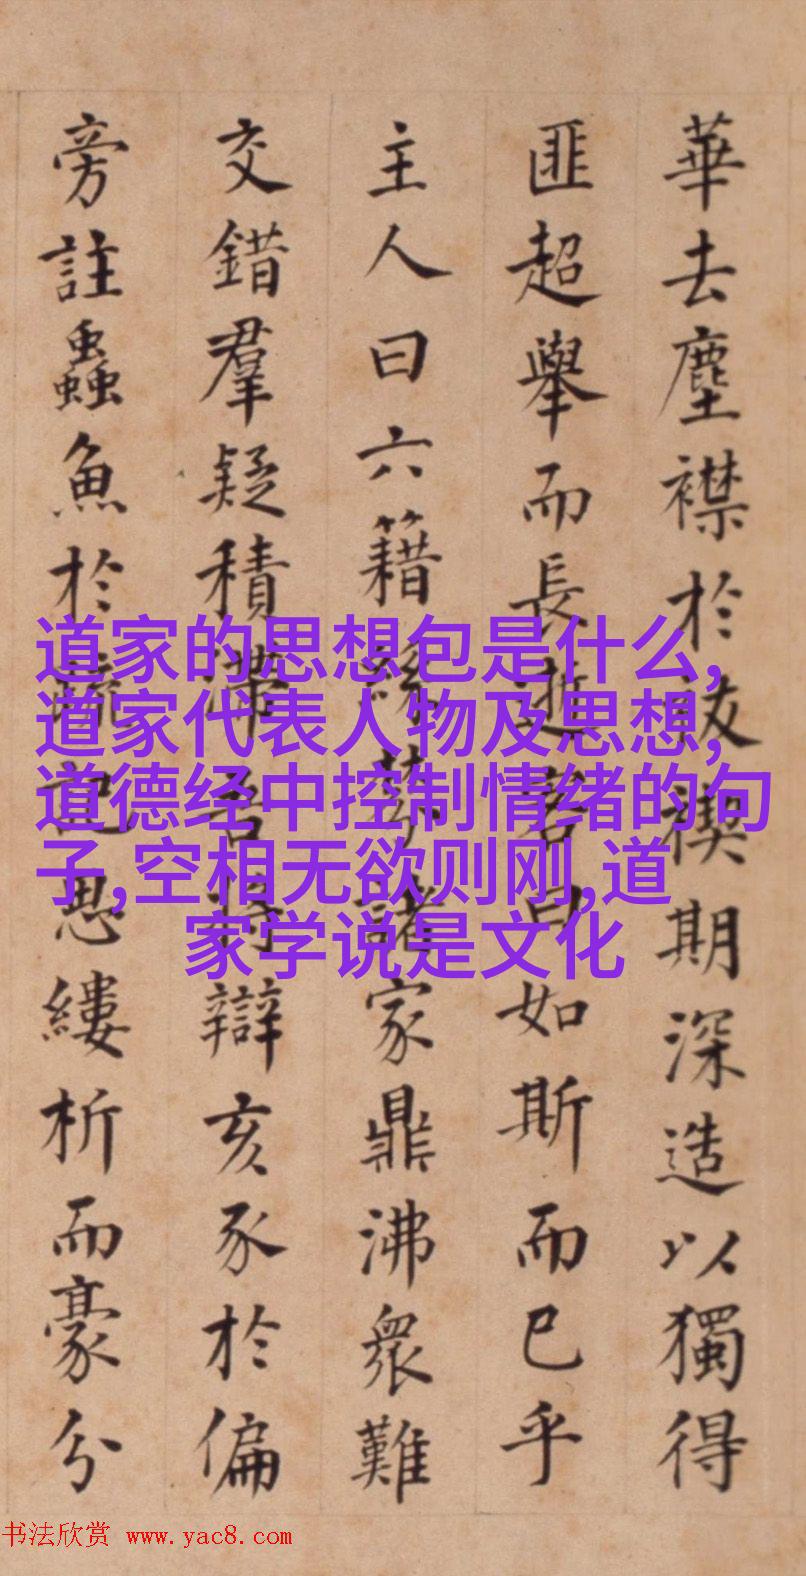 華去塵襟於祓禊期深造以獨得
匪超舉而長遊曰如斯而已乎
主人曰六籍芬諸家鼎沸衆難
交錯羣疑積滯吾將辯亥豕於偏
旁註蟲魚於思縷析而豪分
道家的思想包是什么,
道家代表人物及思想,
道德经中控制情绪的句
子,空相无欲则刚,道
家学说是文化
书法欣赏 www.yac8.com